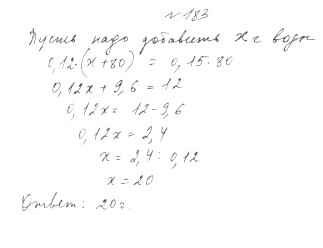 № 183
Пусть надо добавить x г воды
0,12·(x+80) = 0,15·80
0,12x + 9,6 = 12
0,12x = 12-9,6
0,12x = 2,4
x = 2,4 : 0,12
x = 20
Ответ: 20 г.